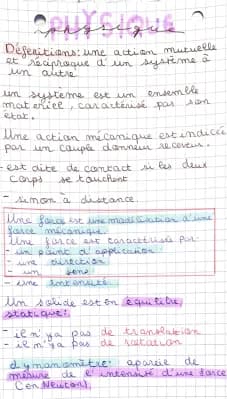 PHYSIQUE
physique
Définitions: une action mutuelle
et réciproque d'un système à
un autre
un système est un ensemble
matériel, caractérisé par son
état.
Une action mécanique est indicée
par un couple donneur receveur.
- est dite de contact si les deux
corps se touchent
- sinon à distance.
Une force est une modélisation d'une
force mécanique.
Une force est caractérisée par
- un point d'application
- une direction
- un sens
- une intensité
Un solide est en équilibre
statique:
- il n'y a pas de translation
- il n'y a pas de rotation
dynamomètre: appareil de
mesure de l'intensité d'une force
(en Newton).